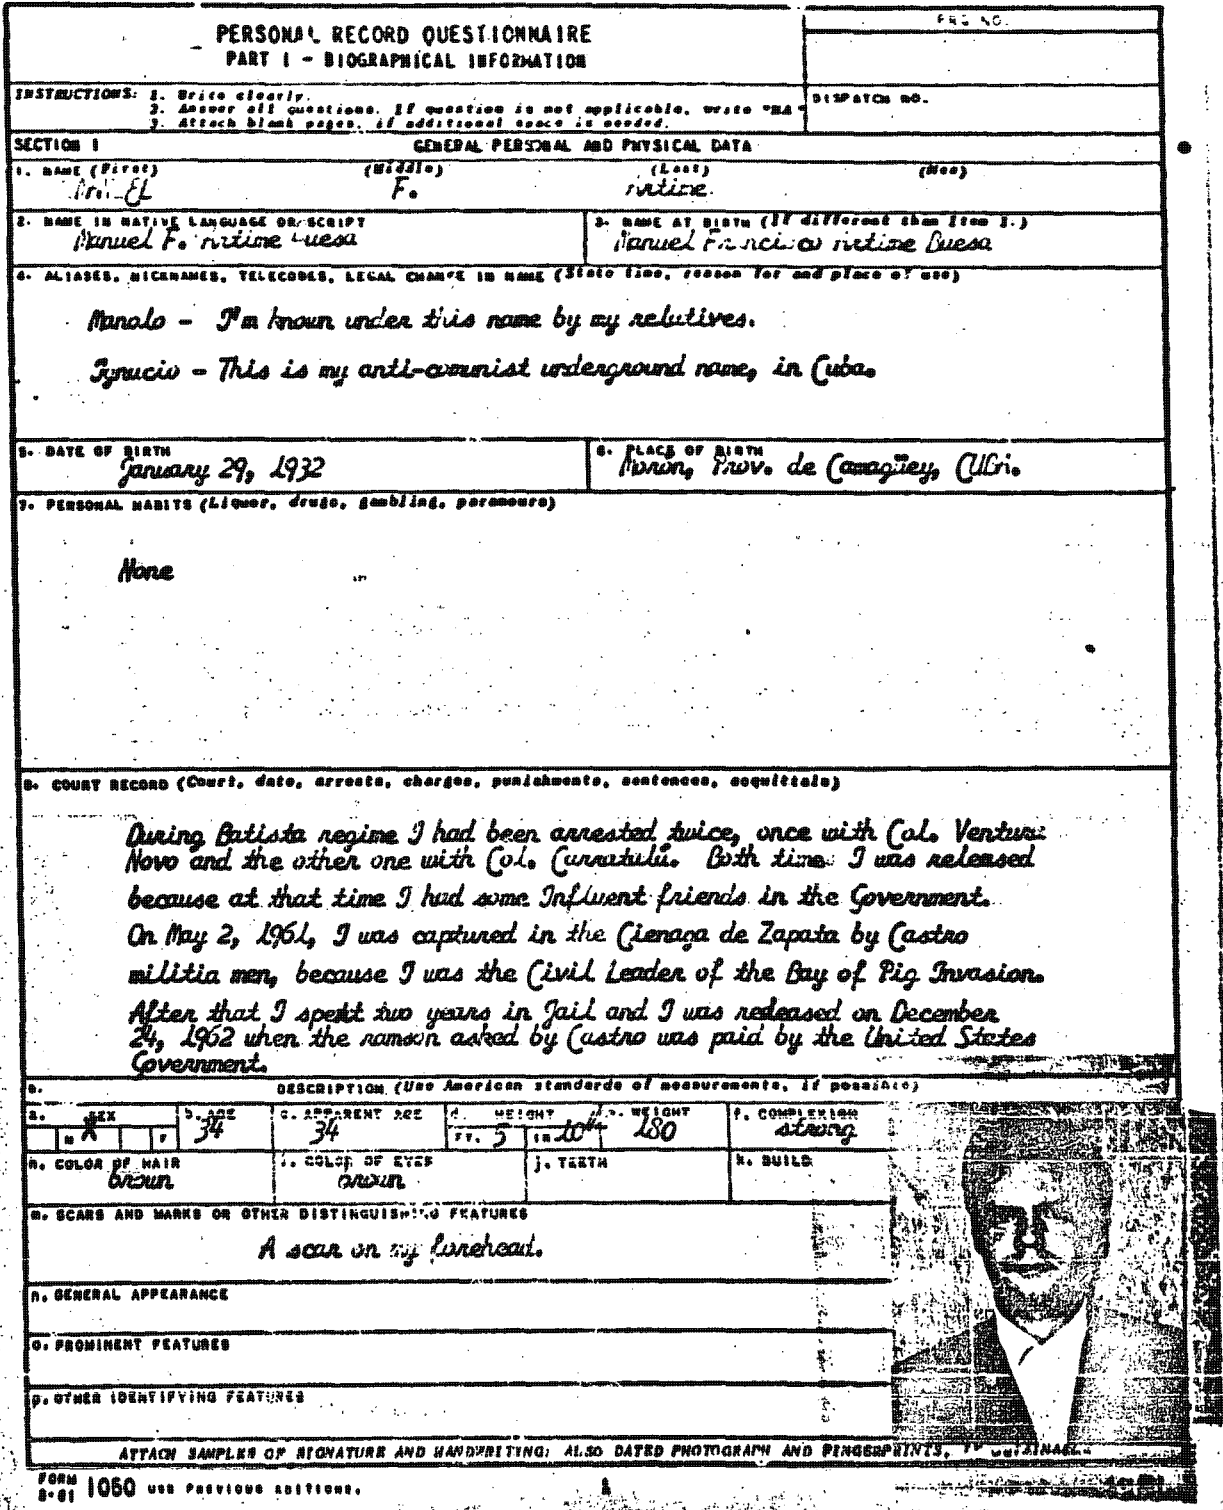 PERSONAL RECORD QUESTIONNAIRE
PART I - BIOGRAPHICAL INFORMATION
PRQ NO.
DISPATCH NO.
INSTRUCTIONS: 1. Write clearly.
2. Answer all questions. If question is not applicable, write "NA"
3. Attach blank pages, if additional space is needed.
SECTION I GENERAL PERSONAL AND PHYSICAL DATA
1. NAME (First) (Middle) (Last)
F.
2. NAME IN NATIVE LANGUAGE OR SCRIPT 3. NAME AT BIRTH (If different than Item 1.)
Manuel F. Manuel Buesa
4. ALIASES, NICKNAMES, TELECODES, LEGAL CHANGE IN NAME (State time, reason for and place of use)
Manolo - I'm known under this name by my relatives.
Ignacio - This is my anti-comunist underground name, in Cuba.
5. DATE OF BIRTH 6. PLACE OF BIRTH
January 29, 1932 Moron, Prov. de Camagüey,
7. PERSONAL HABITS (Liquor, drugs, gambling, paramours)
None
8. COURT RECORD (Court, date, arrests, charges, punishments, sentences, acquittals)
During Batista regime I had been arrested twice, once with Col. Ventura
Novo and the other one with Col. Both time I was released
because at that time I had some Influent friends in the Government.
On May 2, 1961, I was captured in the Cienaga de Zapata by Castro
militia men, because I was the Civil Leader of the Bay of Pig Invasion.
After that I spent two years in Jail and I was released on December
24, 1962 when the ramson asked by Castro was paid by the United States
Government.
9. DESCRIPTION (Use American standards of measurements, if possible)
a. SEX b. AGE c. APPARENT AGE d. HEIGHT e. WEIGHT f. COMPLEXION
M X F 34 34 FT. 5 IN 10 180 strong
h. COLOR OF HAIR i. COLOR OF EYES j. TEETH k. BUILD
brown brown
m. SCARS AND MARKS OR OTHER DISTINGUISHING FEATURES
A scar on my forehead.
n. GENERAL APPEARANCE
o. PROMINENT FEATURES
p. OTHER IDENTIFYING FEATURES
ATTACH SAMPLES OF SIGNATURE AND HANDWRITING; ALSO DATED PHOTOGRAPH AND FINGERPRINTS,
FORM 8-61 1050 USE PREVIOUS EDITIONS.